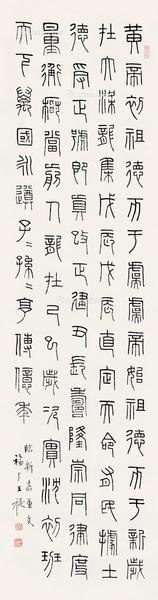 黃帝初祖德帀于虞虞帝始祖德帀于新歲
在大梁龍集戊辰戊辰直定天命有民據土
德受正號即真改正建丑長壽隆崇同律度
量衡稽當前人龍在己巳歲次實沈初班
天下萬國永遵子〻孫〻亨傳億年
臨新嘉量文
福厂王禔